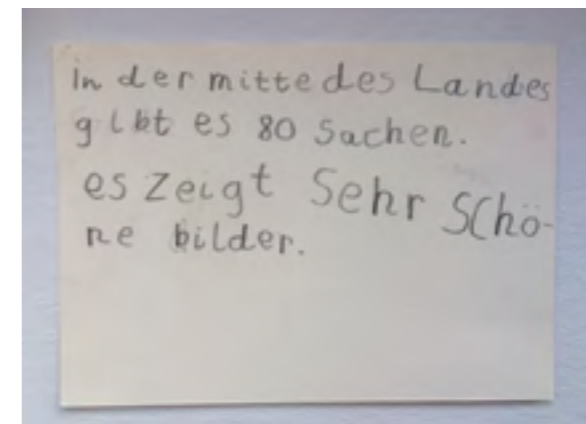 in der mitte des Landes
gibt es 80 Sachen.
es zeigt Sehr Schö-
ne bilder.